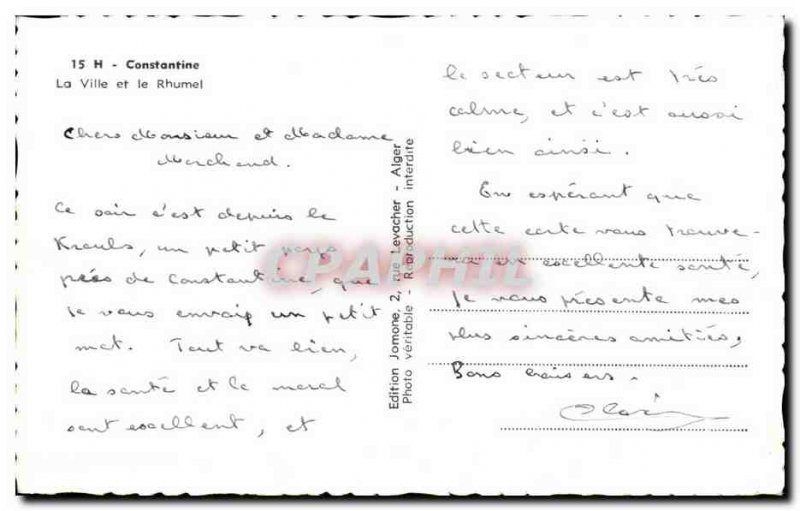 15 H - Constantine
La Ville et le Rhumel
Chers Monsieur et Madame
Marchand.
Ce soir c'est depuis le
Kroubs, un petit pays
près de Constantine, que
je vous envoie un petit
mot. Tout va bien,
la santé et le moral
sont excellent, et
Edition Jomone, 2, rue Levacher - Alger
Photo véritable - Reproduction interdite
le secteur est très
calme, et c'est aussi
bien ainsi.
En espérant que
cette carte vous trouve-
ra en excellente santé,
je vous présente mes
plus sincères amitiés,
Bons baisers.
CPAPHIL